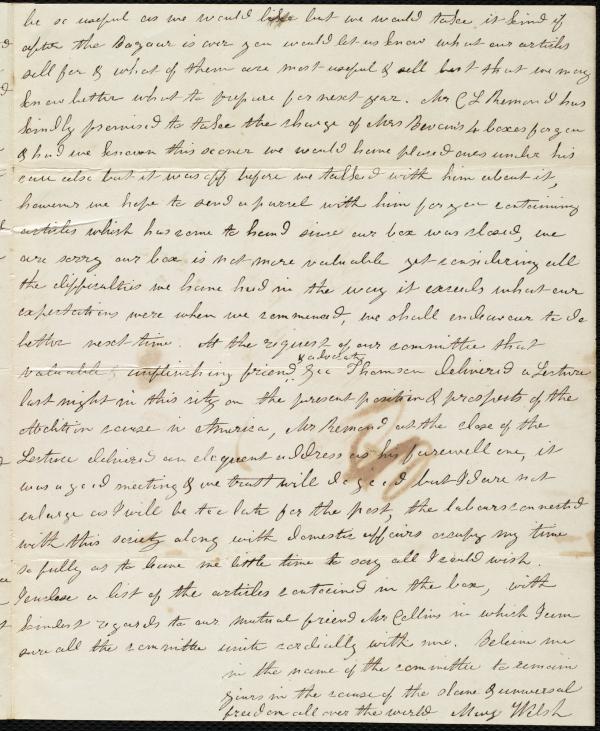 be so useful as we would like but we would take it kind if
after the Bazaar is over you would let us know what our articles
sell for & what of them are most useful & sell best that we may
know better what to prepare for next year. Mr C L Remond has
kindly promised to take the charge of Mrs Bevan's 4 boxes for you
& had we known this sooner we would have placed ours under his
care also but it was off before we talked with him about it,
however we hope to send a parcel with him for you containing
articles which has come to hand since our box was closed, we
are sorry our box is not more valuable yet considering all
the difficulties we have had in the way it exceeds what our
expectations were when we commenced, we shall endeavour to do
better next time. At the request of our committee that
& advocate
valuable & unflinching friend Geo Thomson delivered a Lecture
last night in this city on the present position & prospects of the
Abolition cause in America, Mr Remond at the close of the
Lecture delivered an eloquent address as his farewell one, it
was a good meeting & we trust will do good but I dare not
enlarge as I will be too late for the post, the labours connected
with this society along with domestic affairs occupy my time
so fully as to leave me little time to say all I could wish.
I enclose a list of the articles contained in the box, with
kindest regards to our mutual friend Mr Collins in which I am
sure all the committee unite cordially with me. Beleive me
in the name of the committee to remain
yours in the cause of the slave & universal
freedom all over the world Mary Welsh